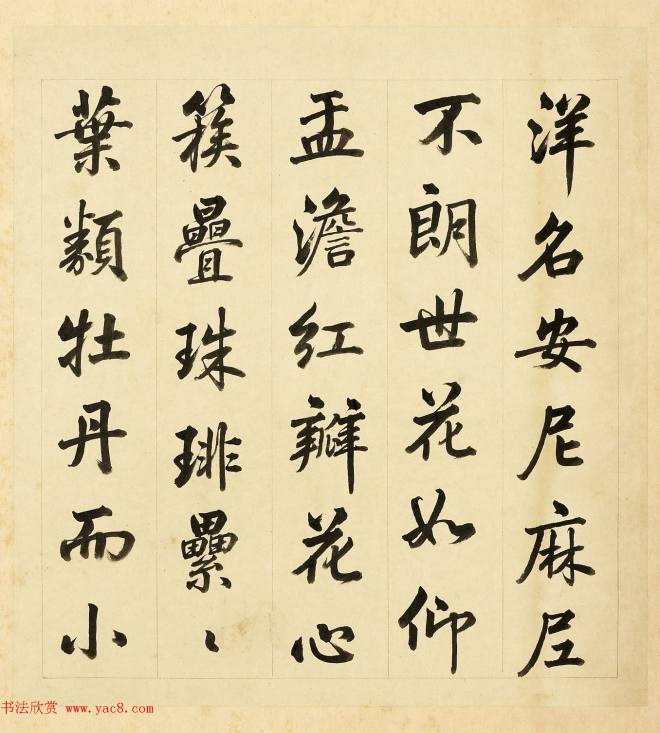 洋名安尼麻尼
不朗世花如仰
盂澹红瓣花心
簇疊珠琲纍〻
葉類牡丹而小
书法欣赏 www.yac8.com